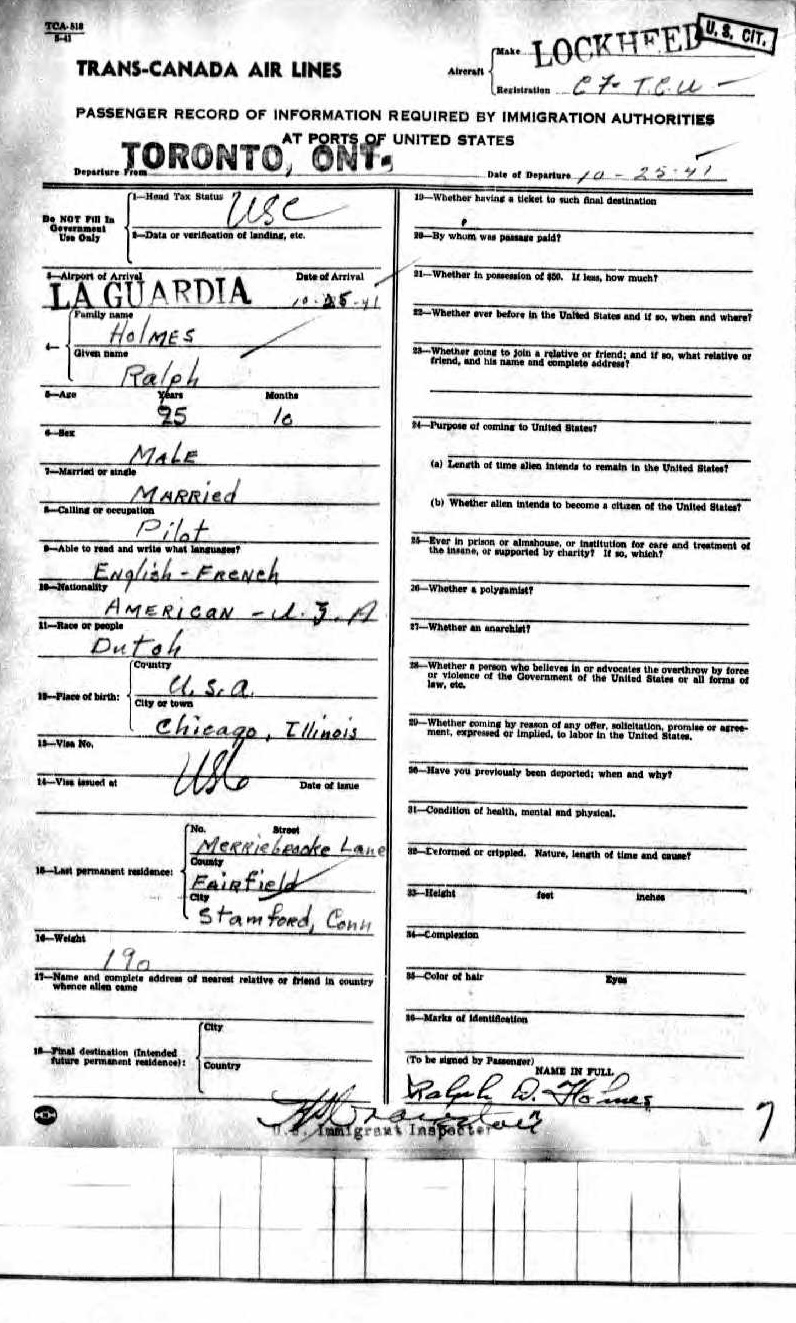 TCA-518
5-41
TRANS-CANADA AIR LINES
Aircraft
Make LOCKHEED
U. S. CIT.
Registration CF-T.C.U-
PASSENGER RECORD OF INFORMATION REQUIRED BY IMMIGRATION AUTHORITIES
AT PORTS OF UNITED STATES
Departure From TORONTO, ONT.
Date of Departure 10-25-41
Do NOT Fill In Government Use Only
1—Head Tax Status USC
2—Data or verification of landing, etc.
3—Airport of Arrival Date of Arrival
LA GUARDIA 10-25-41
4—
Family name
HOLMES
Given name
Ralph
5—Age Years Months
25 10
6—Sex
MALE
7—Married or single
MARRIED
8—Calling or occupation
Pilot
9—Able to read and write what languages?
English - FRENCH
10—Nationality
AMERICAN - U.S.A
11—Race or people
Dutch
12—Place of birth:
Country
U.S.A.
City or town
Chicago, Illinois
13—Visa No.
USC
14—Visa issued at Date of issue
15—Last permanent residence:
No. Street
Merriebrooke Lane
County
FAIRFIELD
City
Stamford, Conn
16—Weight
190
17—Name and complete address of nearest relative or friend in country
whence alien came
18—Final destination (Intended
future permanent residence):
City
Country
19—Whether having a ticket to such final destination
20—By whom was passage paid?
21—Whether in possession of $50. If less, how much?
22—Whether ever before in the United States and if so, when and where?
23—Whether going to join a relative or friend; and if so, what relative or
friend, and his name and complete address?
24—Purpose of coming to United States?
(a) Length of time alien intends to remain in the United States?
(b) Whether alien intends to become a citizen of the United States?
25—Ever in prison or almshouse, or institution for care and treatment of
the insane, or supported by charity? If so, which?
26—Whether a polygamist?
27—Whether an anarchist?
28—Whether a person who believes in or advocates the overthrow by force
or violence of the Government of the United States or all forms of
law, etc.
29—Whether coming by reason of any offer, solicitation, promise or agree-
ment, expressed or implied, to labor in the United States.
30—Have you previously been deported; when and why?
31—Condition of health, mental and physical.
32—Deformed or crippled. Nature, length of time and cause?
33—Height feet inches
34—Complexion
35—Color of hair Eyes
36—Marks of Identification
(To be signed by Passenger)
NAME IN FULL
Ralph D. Holmes
U.S. Immigrant Inspector
7